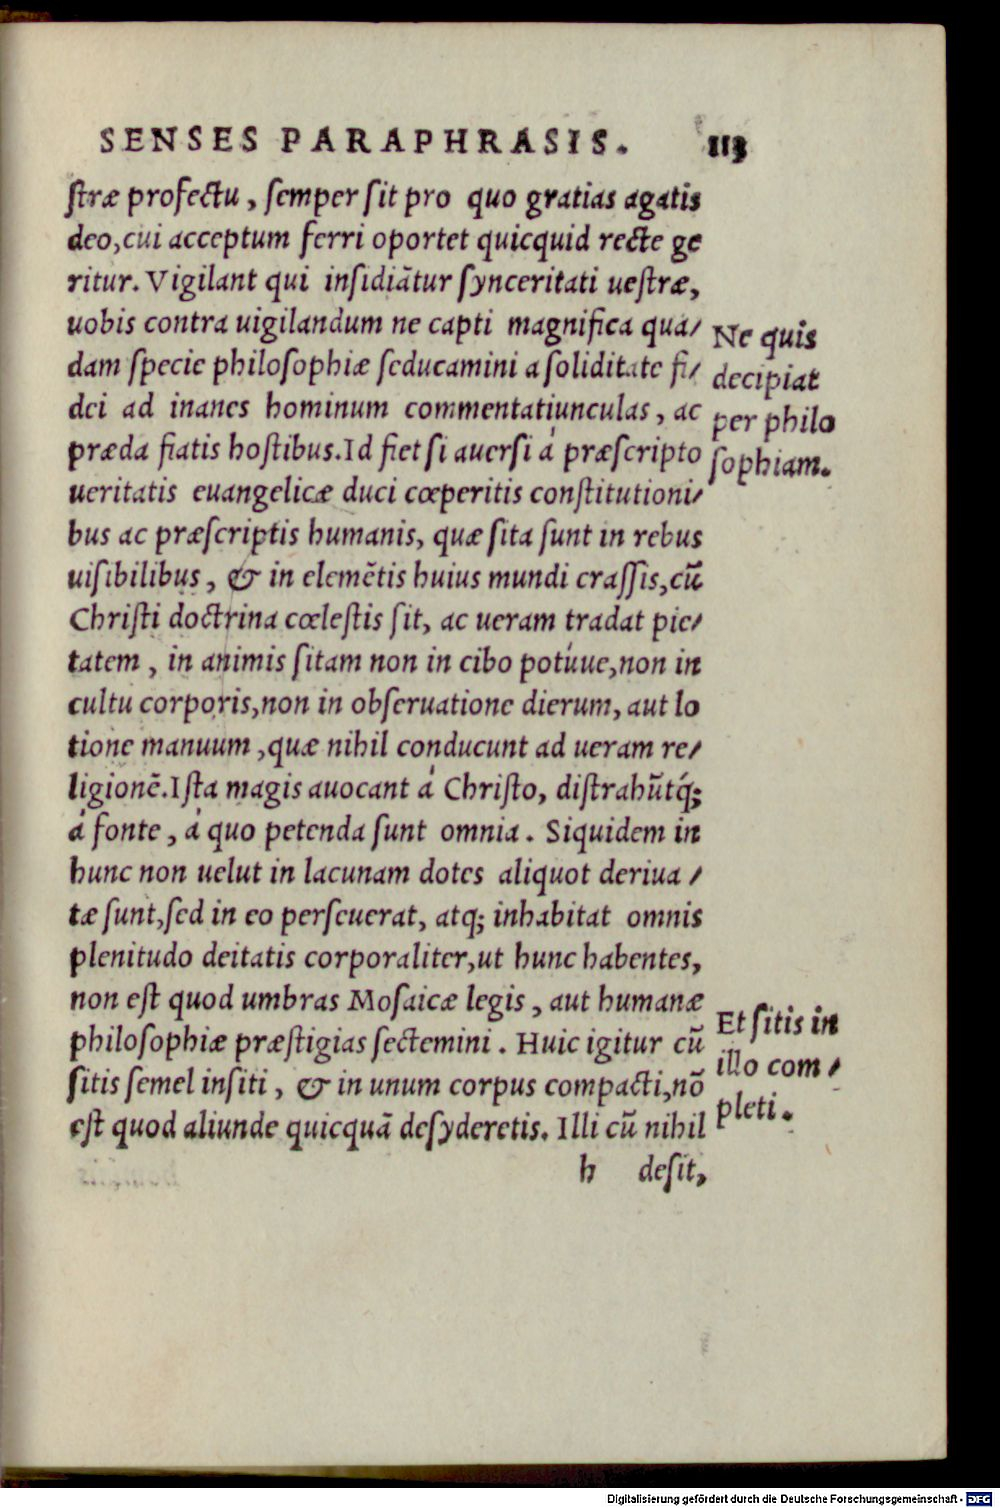 SENSES PARAPHRASIS. 113
ſtræ profectu, ſemper ſit pro quo gratias agatis
deo, cui acceptum ferri oportet quicquid recte ge
ritur. Vigilant qui inſidiãtur ſynceritati ueſtræ,
uobis contra uigilandum ne capti magnifica qua/
dam ſpecie philoſophiæ ſeducamini a ſoliditate fi/
dei ad inanes hominum commentatiunculas, ac
præda fiatis hoſtibus. Id fiet ſi auerſi á præſcripto
ueritatis euangelicæ duci cœperitis conſtitutioni/
bus ac præſcriptis humanis, quæ ſita ſunt in rebus
uiſibilibus, & in elemẽtis huius mundi craſſis, cũ
Chriſti doctrina cœleſtis ſit, ac ueram tradat pie/
tatem, in animis ſitam non in cibo potúue, non in
cultu corporis, non in obſeruatione dierum, aut lo
tione manuum, quæ nihil conducunt ad ueram re/
ligionẽ. Iſta magis auocant á Chriſto, diſtrahũtq́;
á fonte, á quo petenda ſunt omnia. Siquidem in
hunc non uelut in lacunam dotes aliquot deriua/
tæ ſunt, ſed in eo perſeuerat, atq; inhabitat omnis
plenitudo deitatis corporaliter, ut hunc habentes,
non eſt quod umbras Moſaicæ legis, aut humanæ
philoſophiæ præſtigias ſectemini. Huic igitur cũ
ſitis ſemel inſiti, & in unum corpus compacti, nõ
eſt quod aliunde quicquã deſyderetis. Illi cũ nihil
h deſit,
Ne quis
decipiat
per philo
ſophiam.
Et ſitis in
illo com/
pleti.
Digitalisierung gefördert durch die Deutsche Forschungsgemeinschaft - DFG